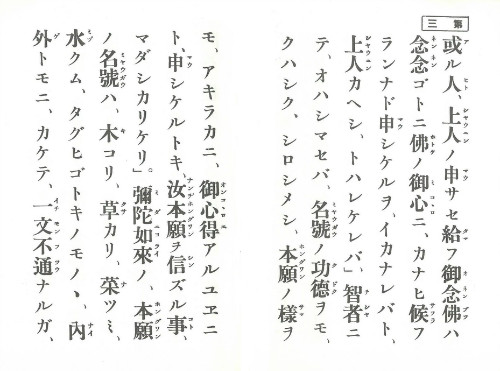 第三
或ル人、上人ノ申サセ給フ御念佛ハ
念念ゴトニ佛ノ御心ニ、カナヒ候フ
ランナド申シケルヲ、イカナレバト、
上人カヘシ、トハレケレバ」智者ニ
テ、オハシマセバ、名號ノ功德ヲモ、
クハシク、シロシメシ、本願ノ樣ヲ
モ、アキラカニ、御心得アルユヱニ
ト、申シケルトキ、汝本願ヲ信ズル事、
マダシカリケリ。」彌陀如來ノ、本願
ノ名號ハ、木コリ、草カリ、菜ツミ、
水クム、タグヒゴトキノモノヽ、內
外トモニ、カケテ、一文不通ナルガ、